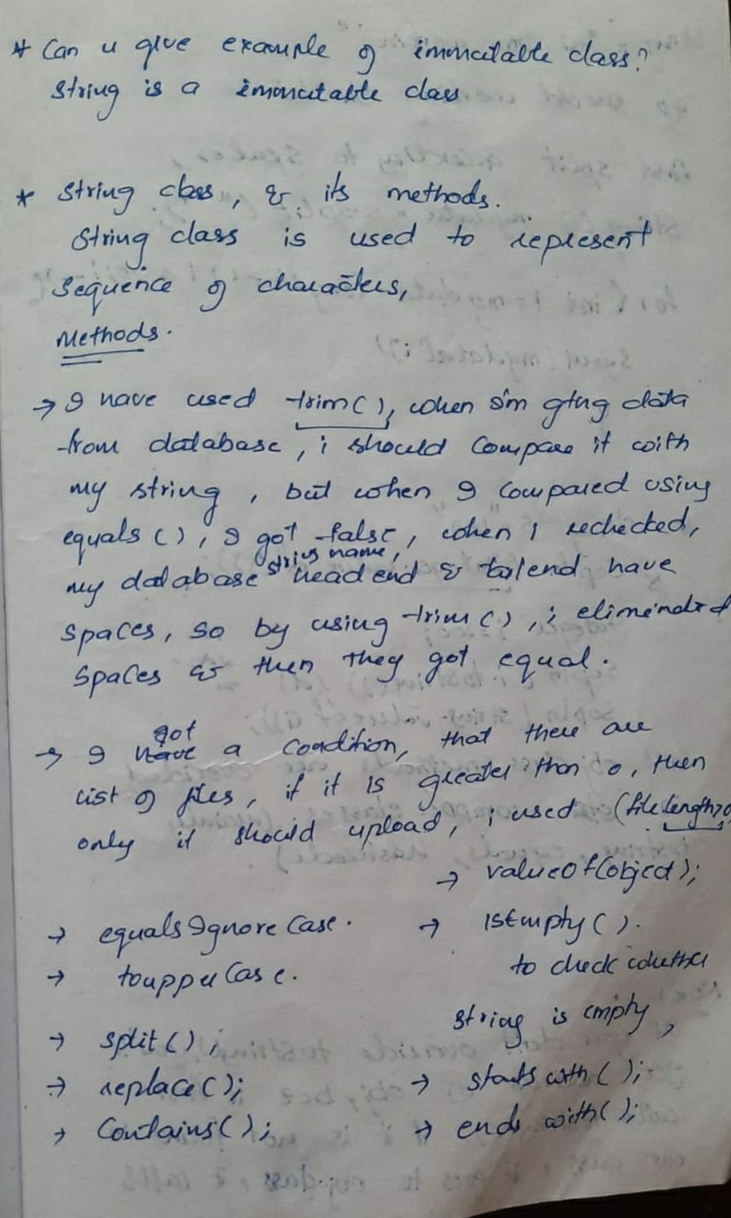 * Can u give example of immutable class?
String is a immutable class
* String class, & its methods.
String class is used to represent
Sequence of characters,
Methods.
→ I have used trim(), when I'm gtng data
from database, i should compare it with
my string, but when I compared using
equals(), I got false, when I rechecked,
my database string name, head end & tail end have
spaces, so by using trim(), i eliminated
spaces & then they got equal.
→ I got a condition, that there are
list of files, if it is greater than 0, then
only it should upload, i used (file length>0
→ valueOf(object);
→ equalsIgnoreCase. → IsEmpty().
→ toupperCase. to check whether
string is empty,
→ split(),
→ replace(); → starts with();
→ Contains(); → ends with();